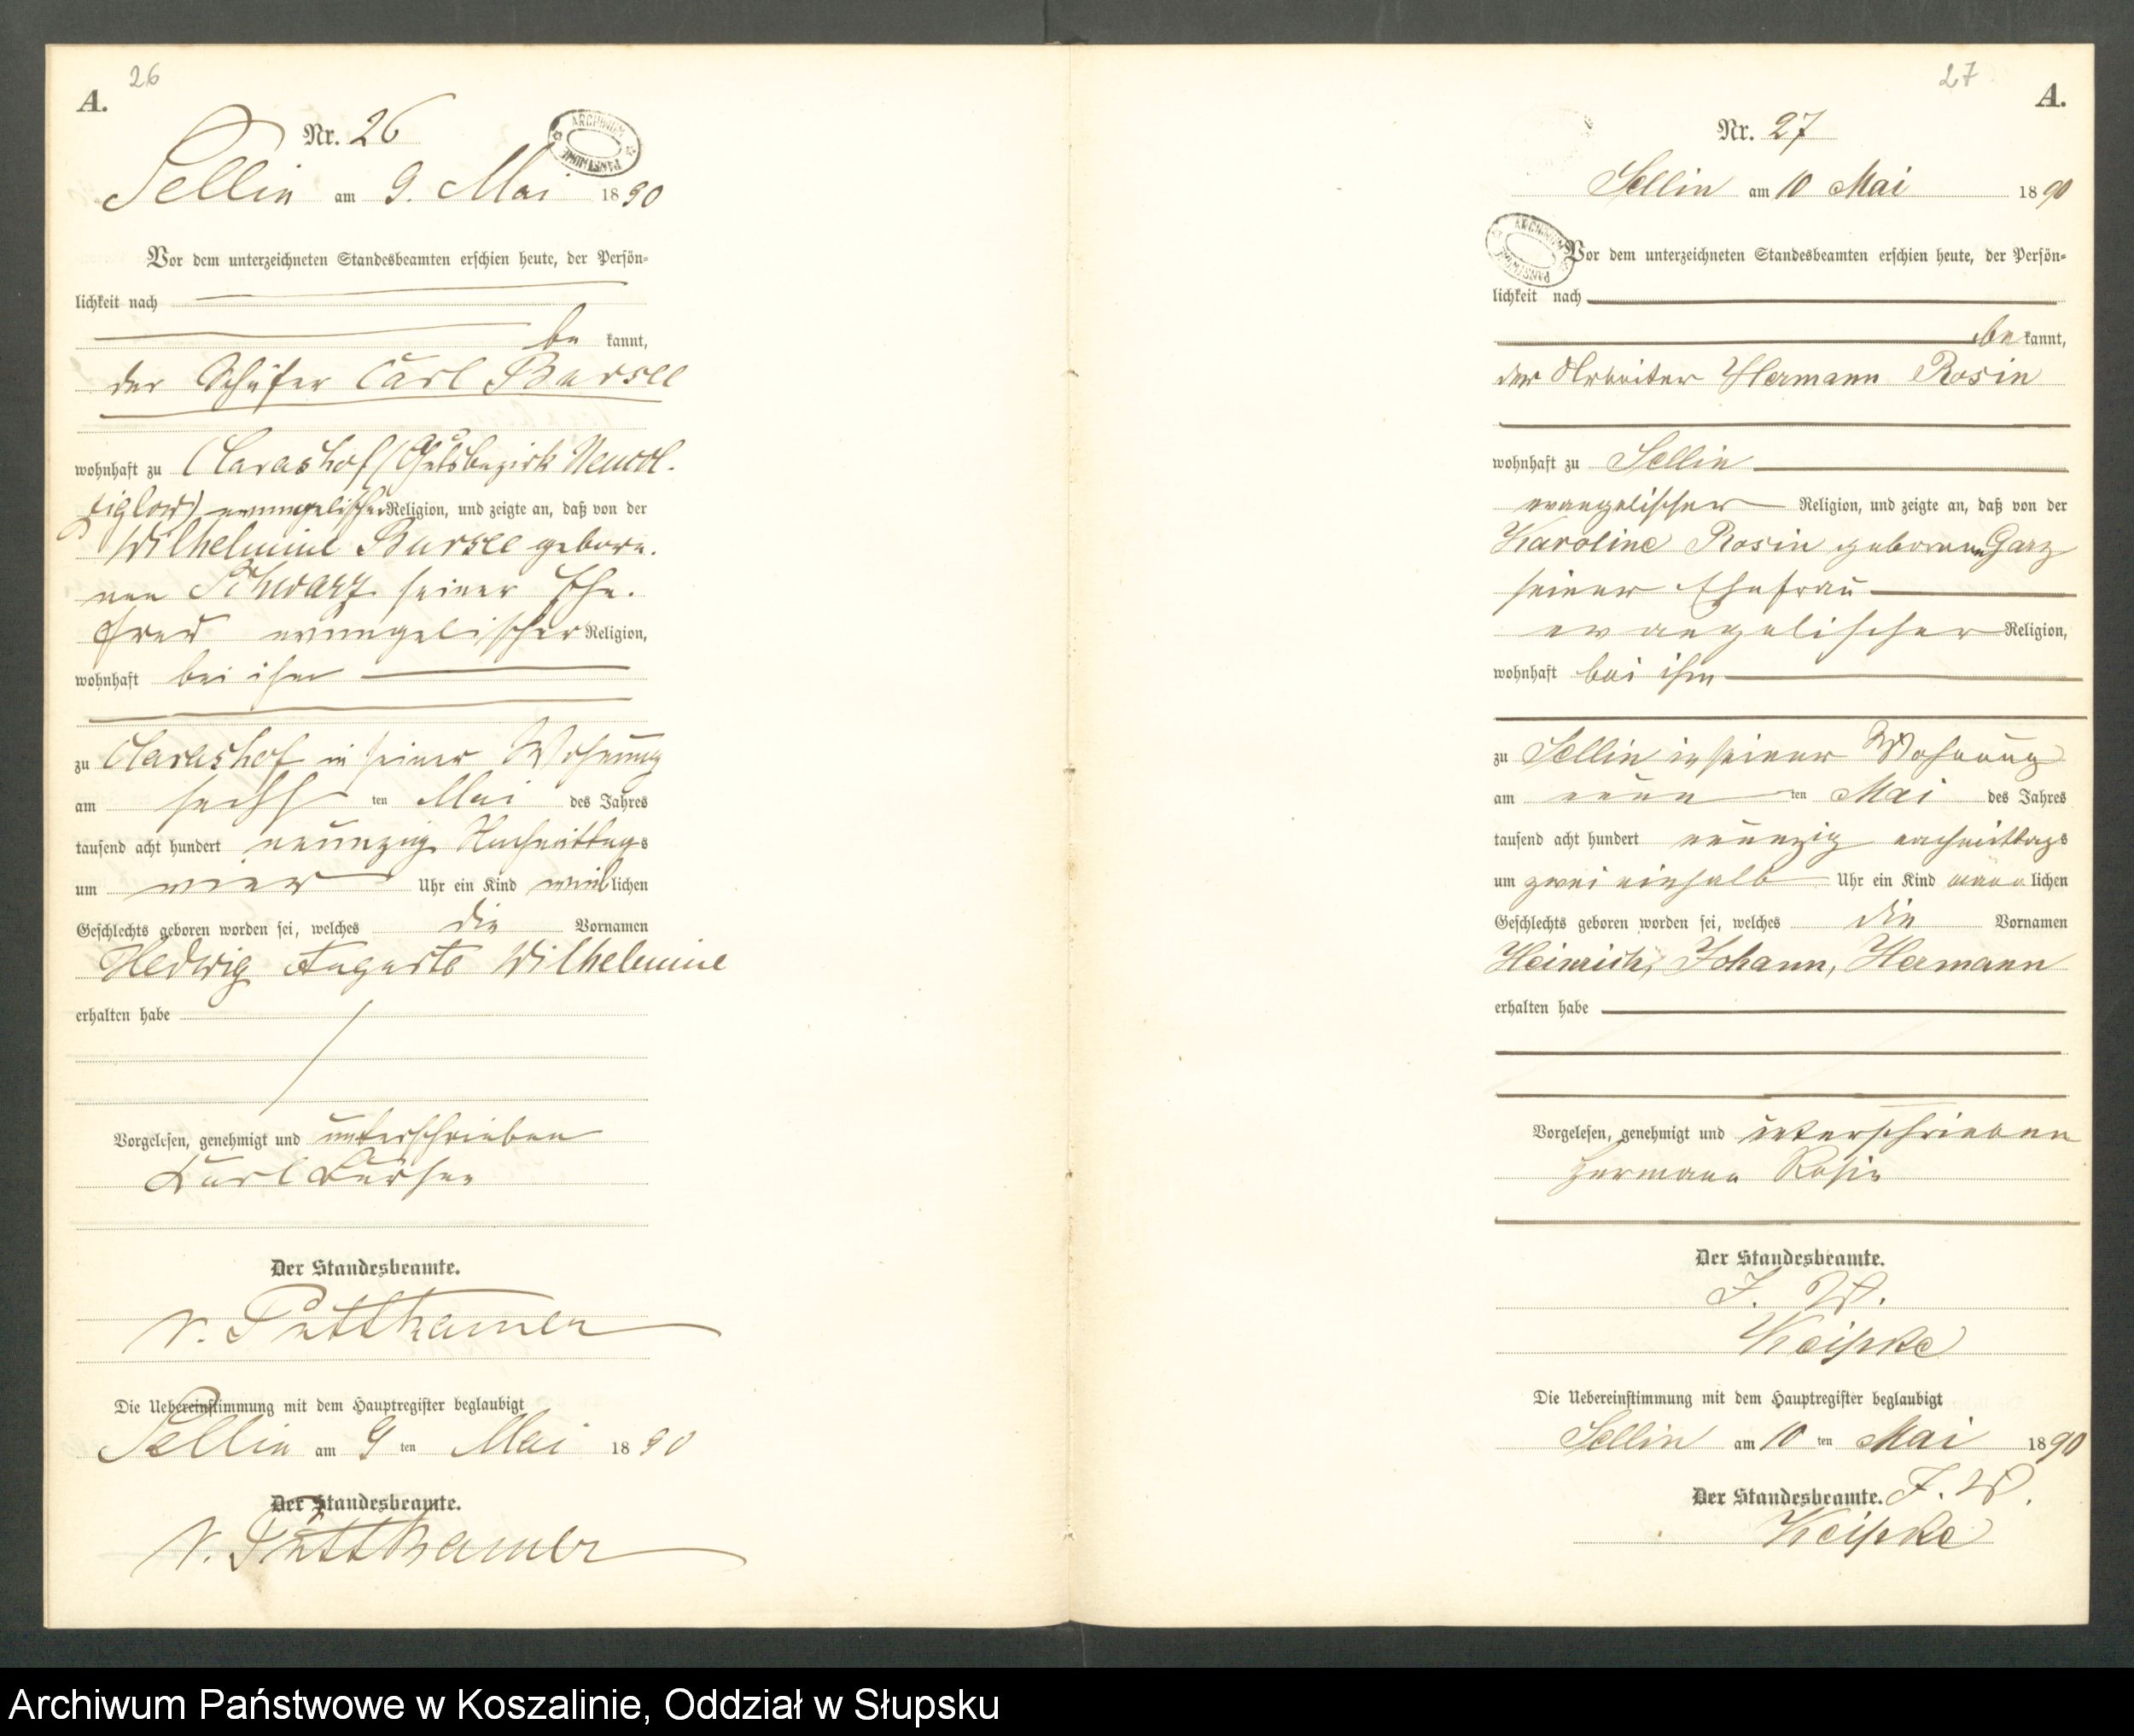 26
A.
Nr. 26
ARCHIWUM PAŃSTWOWE
Sellin am 9. Mai 1890
Vor dem unterzeichneten Standesbeamten erschien heute, der Persön-
lichkeit nach
be kannt,
der Schäfer Carl Bursee
wohnhaft zu Clarashof (Gutsbezirk
evangelischer Religion, und zeigte an, daß von der
Wilhelmine Bursee gebore-
nen Schwarz seiner Ehe-
frau evangelischer Religion,
wohnhaft bei ihm
zu Clarashof in seiner Wohnung
am sechs ten Mai des Jahres
tausend acht hundert neunzig Nachmittags
um vier Uhr ein Kind weiblichen
Geschlechts geboren worden sei, welches die Vornamen
Hedwig Auguste Wilhelmine
erhalten habe
Vorgelesen, genehmigt und unterschrieben
Karl Bursee
Der Standesbeamte.
v. Puttkamer
Die Uebereinstimmung mit dem Hauptregister beglaubigt
Sellin am 9 ten Mai 1890
Der Standesbeamte.
v. Puttkamer
27
A.
Nr. 27
Sellin am 10 Mai 1890
ARCHIWUM PAŃSTWOWE
Vor dem unterzeichneten Standesbeamten erschien heute, der Persön-
lichkeit nach
be kannt,
der Arbeiter Hermann Rosin
wohnhaft zu Sellin
evangelischer Religion, und zeigte an, daß von der
Karoline Rosin geborenen Garz
seiner Ehefrau
evangelischer Religion,
wohnhaft bei ihm
zu Sellin in seiner Wohnung
am neun ten Mai des Jahres
tausend acht hundert neunzig nachmittags
um zwei einhalb Uhr ein Kind männlichen
Geschlechts geboren worden sei, welches die Vornamen
Heinrich, Johann, Hermann
erhalten habe
Vorgelesen, genehmigt und unterschrieben
Hermann Rosin
Der Standesbeamte.
J. V.
Keipke
Die Uebereinstimmung mit dem Hauptregister beglaubigt
Sellin am 10 ten Mai 1890
Der Standesbeamte. J. V.
Keipke
Archiwum Państwowe w Koszalinie, Oddział w Słupsku